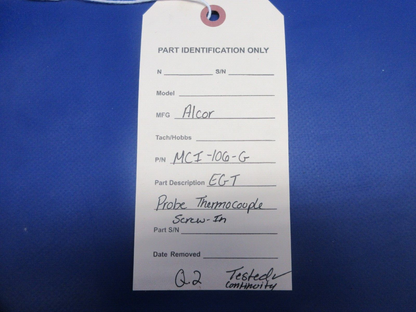 PART IDENTIFICATION ONLY
N ____________ S/N ____________
Model ____________
MFG Alcor
Tach/Hobbs ____________
P/N MCI-106-G
Part Description EGT
Probe Thermocouple
Screw-In
Part S/N ____________
Date Removed ____________
Q.2 Tested ✓
continuity